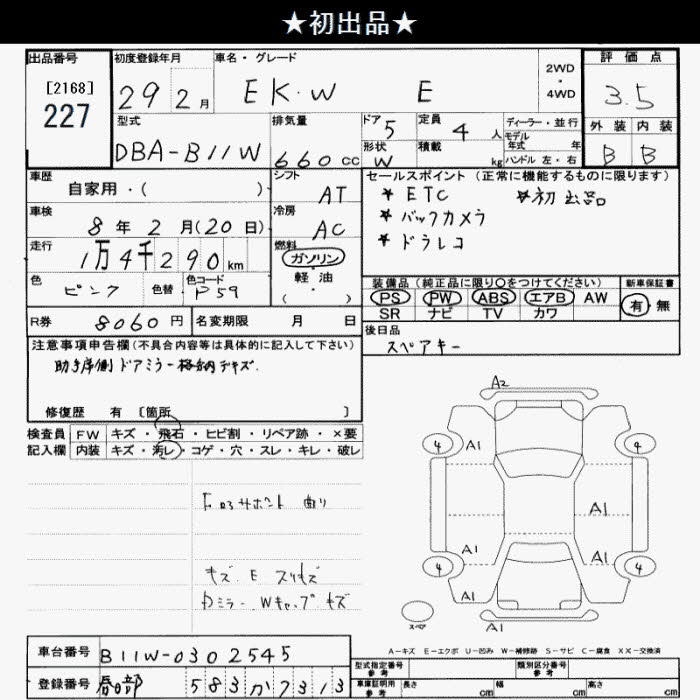 ★初出品★
出品番号
[2168]
227
初度登録年月
29 2月
車名・グレード
EK・W E
2WD
・
4WD
評価点
3.5
外装 内装
B B
型式
DBA-B11W
排気量
660 CC
ドア 5
形状 W
定員 4 人
積載 kg
ディーラー・並行
モデル
年式 年
ハンドル 左・右
車歴
自家用・( )
シフト
AT
車検
8年 2月(20日)
冷房
AC
走行
1万4千290 km
燃料
ガソリン
軽・油
( )
色
ピンク
色替
色コード
P59
R券 8060円
名変期限 月 日
セールスポイント(正常に機能するものに限ります)
* ETC *初出品
* バックカメラ
* ドラレコ
装備品(純正品に限り〇をつけてください)
新車保証書
PS PW ABS エアB AW
SR ナビ TV カワ
有・無
後日品
スペアキー
注意事項申告欄(不具合内容等は具体的に記入して下さい)
助手席側ドアミラー格納デキズ.
修復歴 有 [箇所 ]
検査員
記入欄
FW キズ・飛石・ヒビ割・リペア跡・×要
内装 キズ・汚レ・コゲ・穴・スレ・キレ・破レ
サポート 曲り
キズ E スリキズ
ミラー Wキャップキズ
A2
4 A1 4
A1
A1 A1
4 4
A1 A1
スペア
A-キズ E-エクボ U-凹み W-補修跡 S-サビ C-腐食 XX-交換済
車台番号
B11W-0302545
登録番号
春日部 583 か 7313
型式指定番号
参考
類別区分番号
参考
車庫証明用
参考
長さ cm 幅 cm 高さ cm